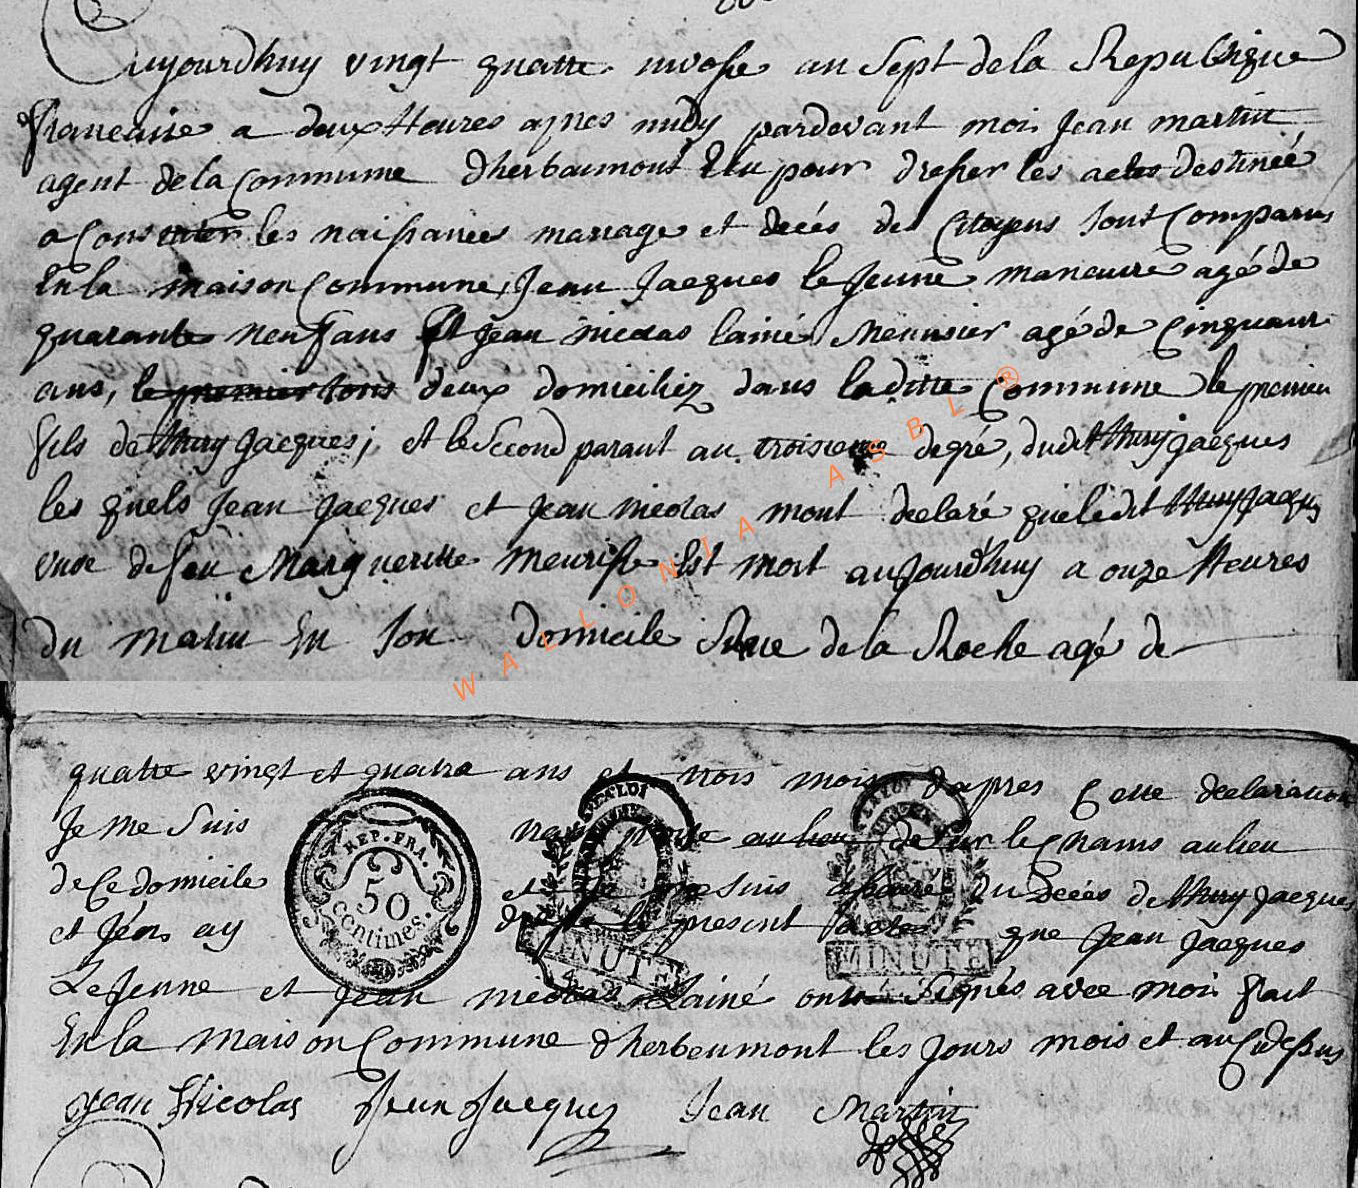 Aujourdhuy vingt quatre nivose an Sept de la Republique
francaise a deux Heures apres midy pardevant moi Jean martin
agent de la Commune dherbeumont Elu pour dresser les actes destineé
a Constater les naissances mariage et decés des Citoyens Sont Comparus
En la maison Commune, Jean Jacques le Jeune maneuvre agé de
quarante neuf ans Et Jean nicolas lainé Meunsier agé de Cinquant
ans, le premier tous deux domiciliez dans laditte Commune le premier
fils de Jacques; et le Second parant au troisieme degré, dudit Jacques
les quels Jean Jacques et Jean nicolas mont declaré que ledit Jacques
de feu Margueritte Meurisse Est mort aujourdhuy a onze Heures
du matin En Son domicile Rue de la Roche agé de
quatre vingt et quatre ans et trois mois dapres Cette declaration
Je me Suis au lieu de Sur le Champs au lieu
de Ce domicile et Je me Suis du Decés de Jacques
et Jén ay le present acte que Jean Jacques
Le Jeune et Jean nicolas Lainé ont Signés avec moi fait
En la maison Commune dherbeumont les Jours mois et an Cydessus
Jean Nicolas Jean Jacques Jean Martin
REP. FRA.
50
centimes.
MINUTE
MINUTE
WALLONIA ASBL ®